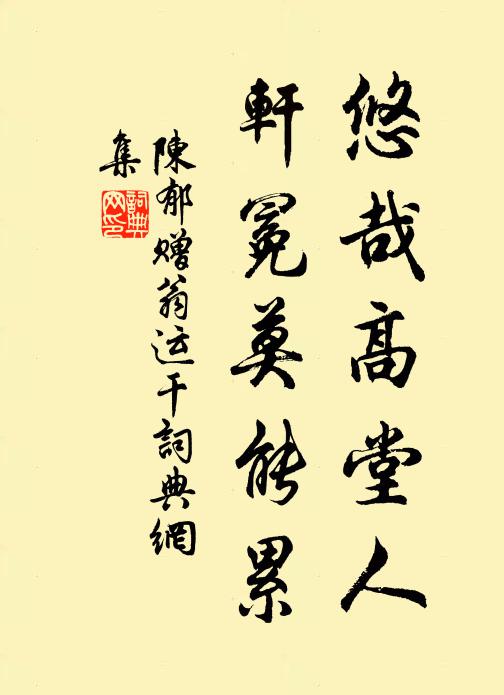 悠哉高堂人
軒冕莫能累
陳郁贈翁运干詞典網
集
詞典网印